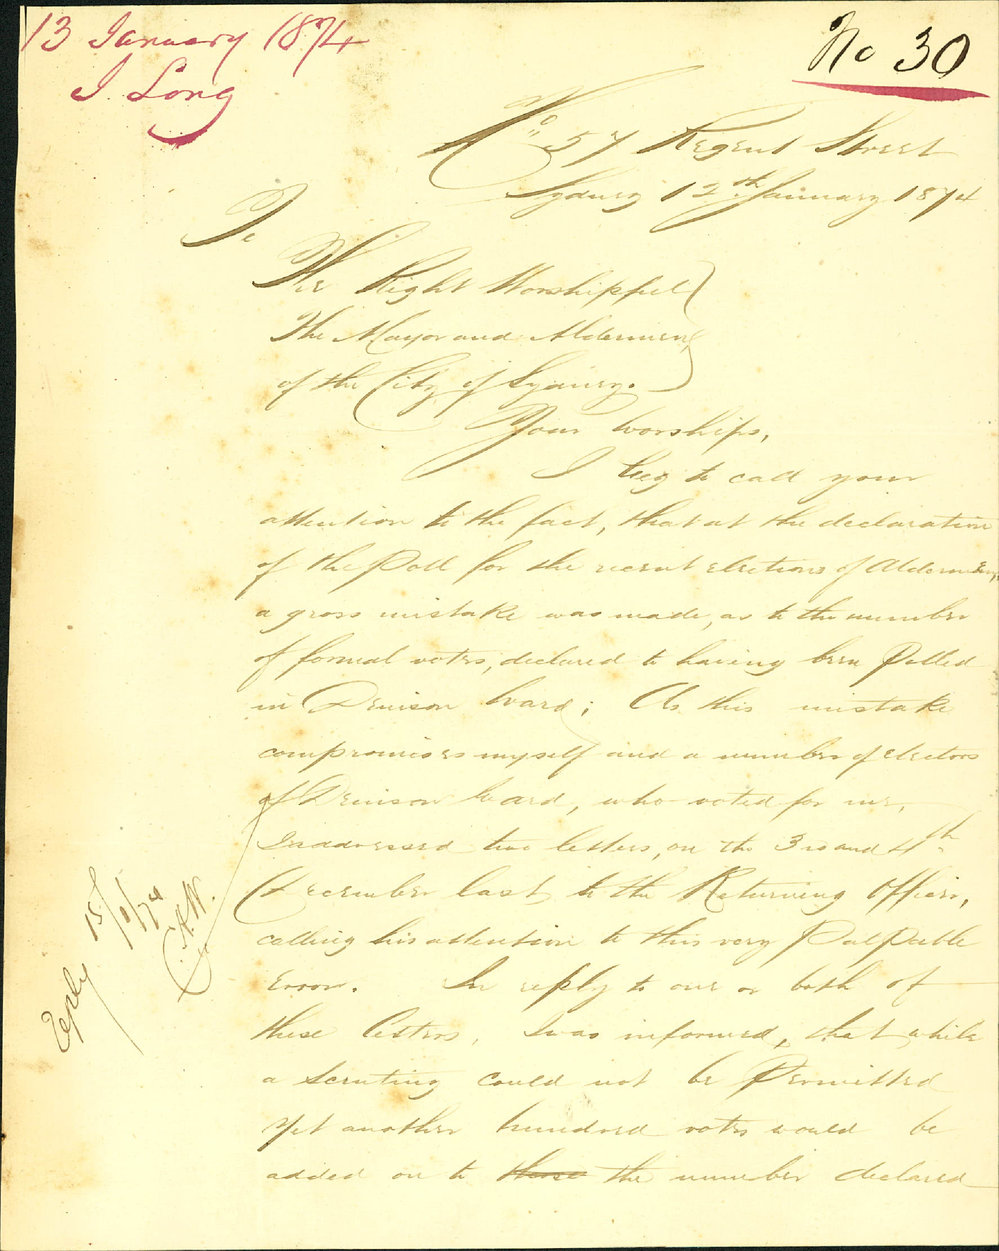 13 January 1874
J. Long
No 30
No 57 Regent Street
Sydney 12th January 1874
To
The Right Worshipful
The Mayor and Aldermen
of the City of Sydney.
Your Worships,
I beg to call your
attention to the fact, that at the declaration
of the Poll for the recent Elections of Aldermen,
a gross mistake was made, as to the number
of formal votes, declared to having been Polled
in Denison Ward; As this mistake
compromises myself and a number of Electors
of Denison Ward, who voted for me,
I addressed two letters, on the 3rd and 4th
December last to the Returning Officer,
calling his attention to this very Palpable
Error. In reply to one or both of
these letters, I was informed, that while
a Scrutiny could not be Permitted
Yet another hundred votes would be
added on to those the number declared
Reply 15/1/74
C.H.W.